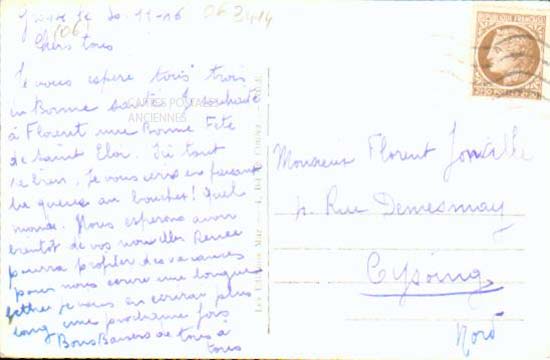 le 30-11-46
063414
(06)
Chers tous
Je vous espère tous trois
en Bonne santé. Je souhaite
à Florent une Bonne Fête
de Saint Eloi. Ici tout
va bien. Je vous écris en faisant
la queue au boucher! Quel
monde. Nous espérons avoir
bientôt de vos nouvelles Renée
pourra profiter des vacances
pour nous écrire une longue
lettre je vous en écrirai plus
long une prochaine fois
Bons Baisers de tous à
tous
CARTES POSTALES
ANCIENNES
Monsieur Florent
Rue Demesmay
Cysoing
Nord